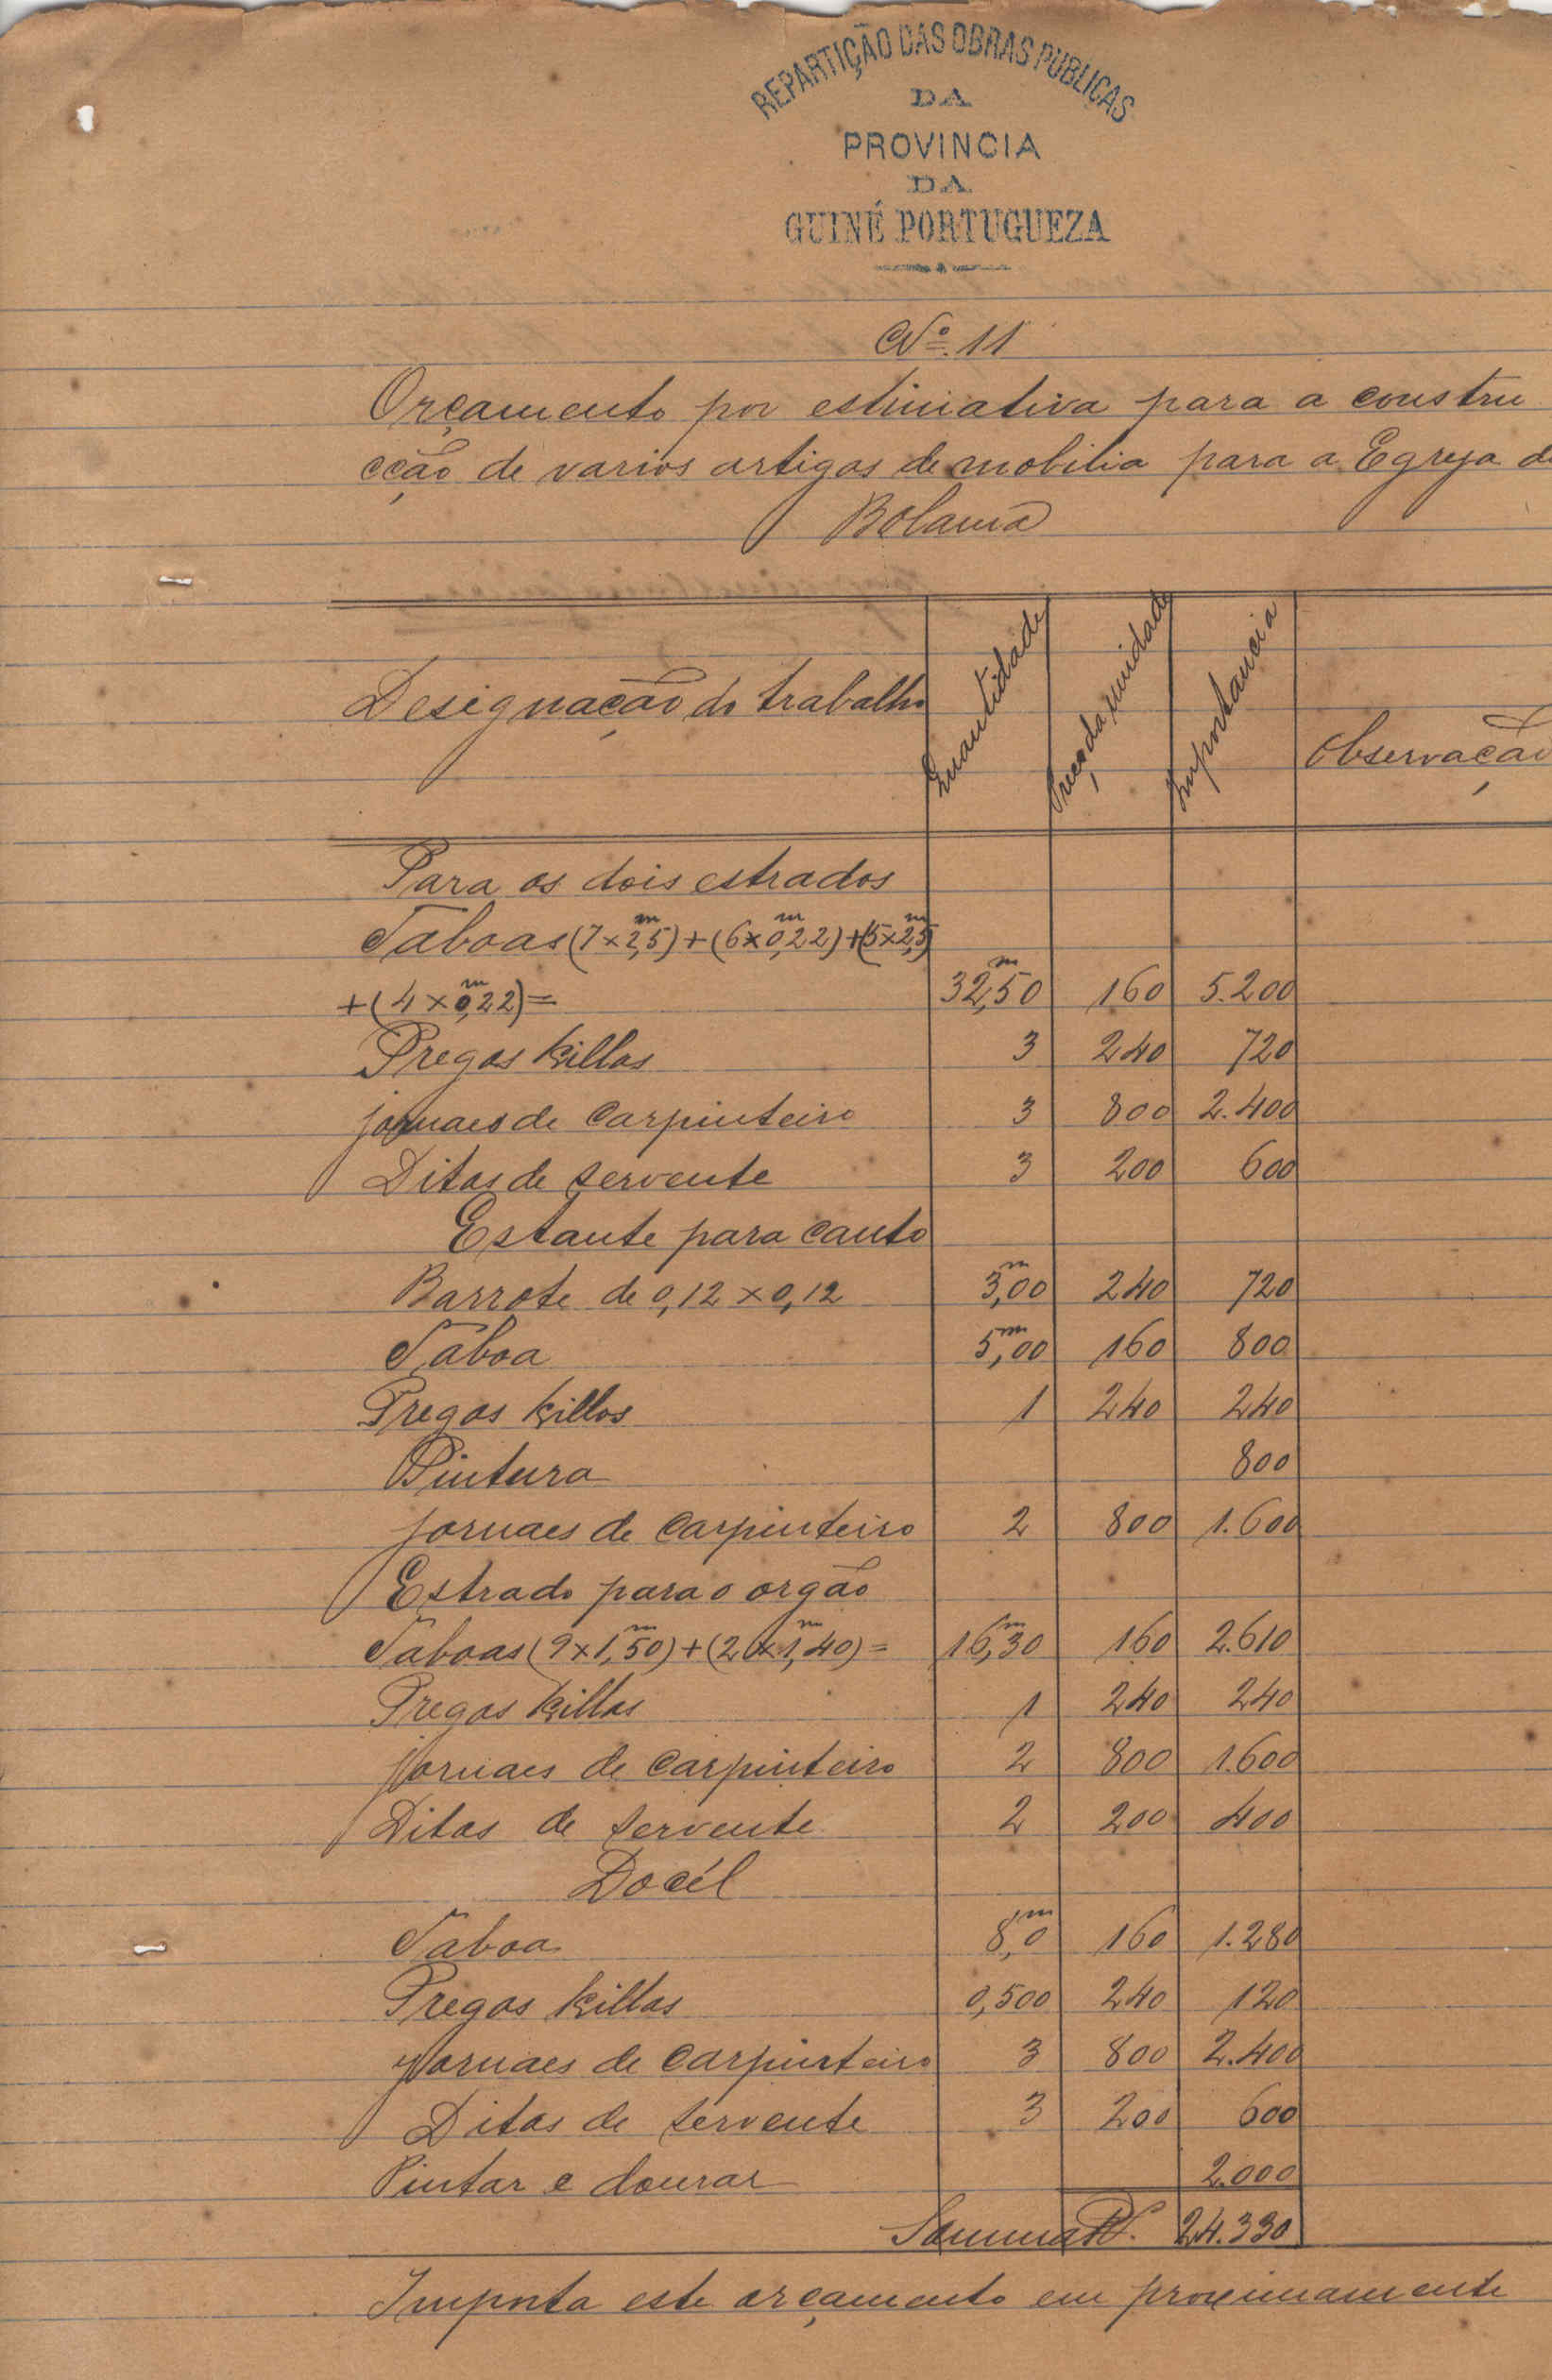 REPARTIÇÃO DAS OBRAS PUBLICAS
DA
PROVINCIA
DA
GUINÉ PORTUGUEZA
Nº 11
Orçamento por estimativa para a constru
cção de varios artigos de mobilia para a Egreja de
Bolama
Designação do trabalho Quantidade Preço da unidade Importancia Observação
Para os dois estrados
Taboas (7 × 2,5m) + (6 × 0,22m) + (5 × 2,5m)
+ (4 × 0,22m) = 32,50m 160 5.200
Pregos killos 3 240 720
jornaes de carpinteiro 3 800 2.400
Ditos de servente 3 200 600
Estante para canto
Barrote de 0,12 × 0,12 3,00m 240 720
Taboa 5,00m 160 800
Pregos killos 1 240 240
Pintura 800
jornaes de carpinteiro 2 800 1.600
Estrado para o orgão
Taboas (9 × 1,50m) + (2 × 1,40m) = 16,30m 160 2.610
Pregos killos 1 240 240
jornaes de carpinteiro 2 800 1.600
Ditos de servente 2 200 400
Docél
Taboa 8,0m 160 1.280
Pregos killos 0,500 240 120
jornaes de carpinteiro 3 800 2.400
Ditos de servente 3 200 600
Pintar e dourar 2.000
Somma R$. 24.330
Importa este orçamento em proximamente